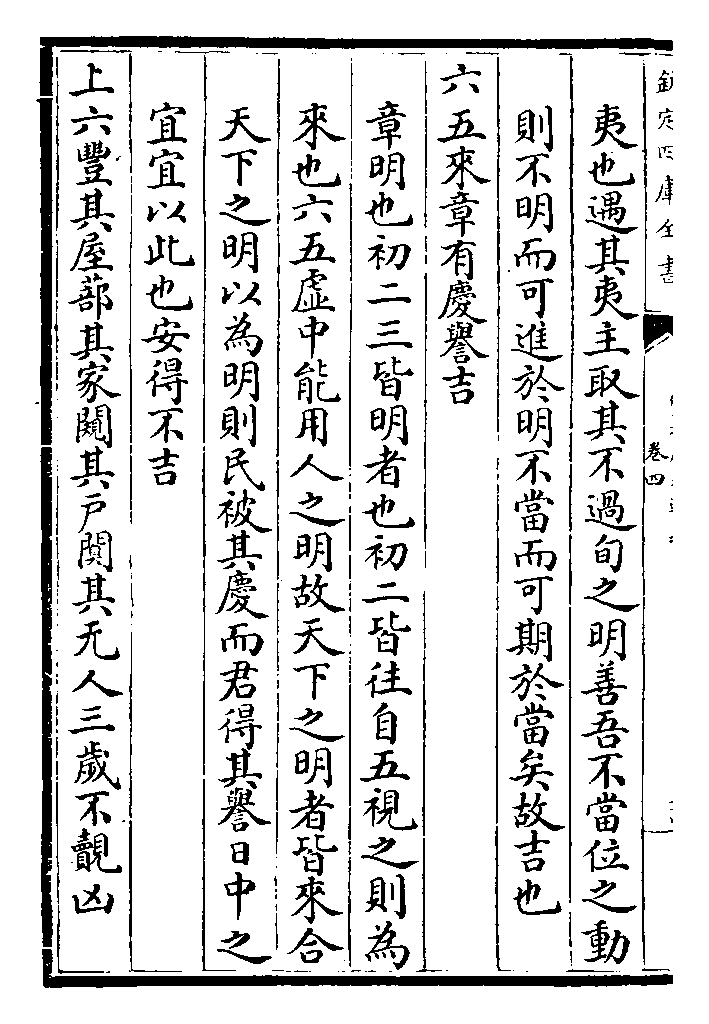 欽定四庫全書
卷四
夷也遇其夷主取其不過旬之明善吾不當位之動
則不明而可進於明不當而可期於當矣故吉也
六五來章有慶譽吉
章明也初二三皆明者也初二皆往自五視之則為
來也六五虛中能用人之明故天下之明者皆來合
天下之明以為明則民被其慶而君得其譽日中之
宜宜以此也安得不吉
上六豐其屋蔀其家闚其戶闃其无人三歲不覿凶